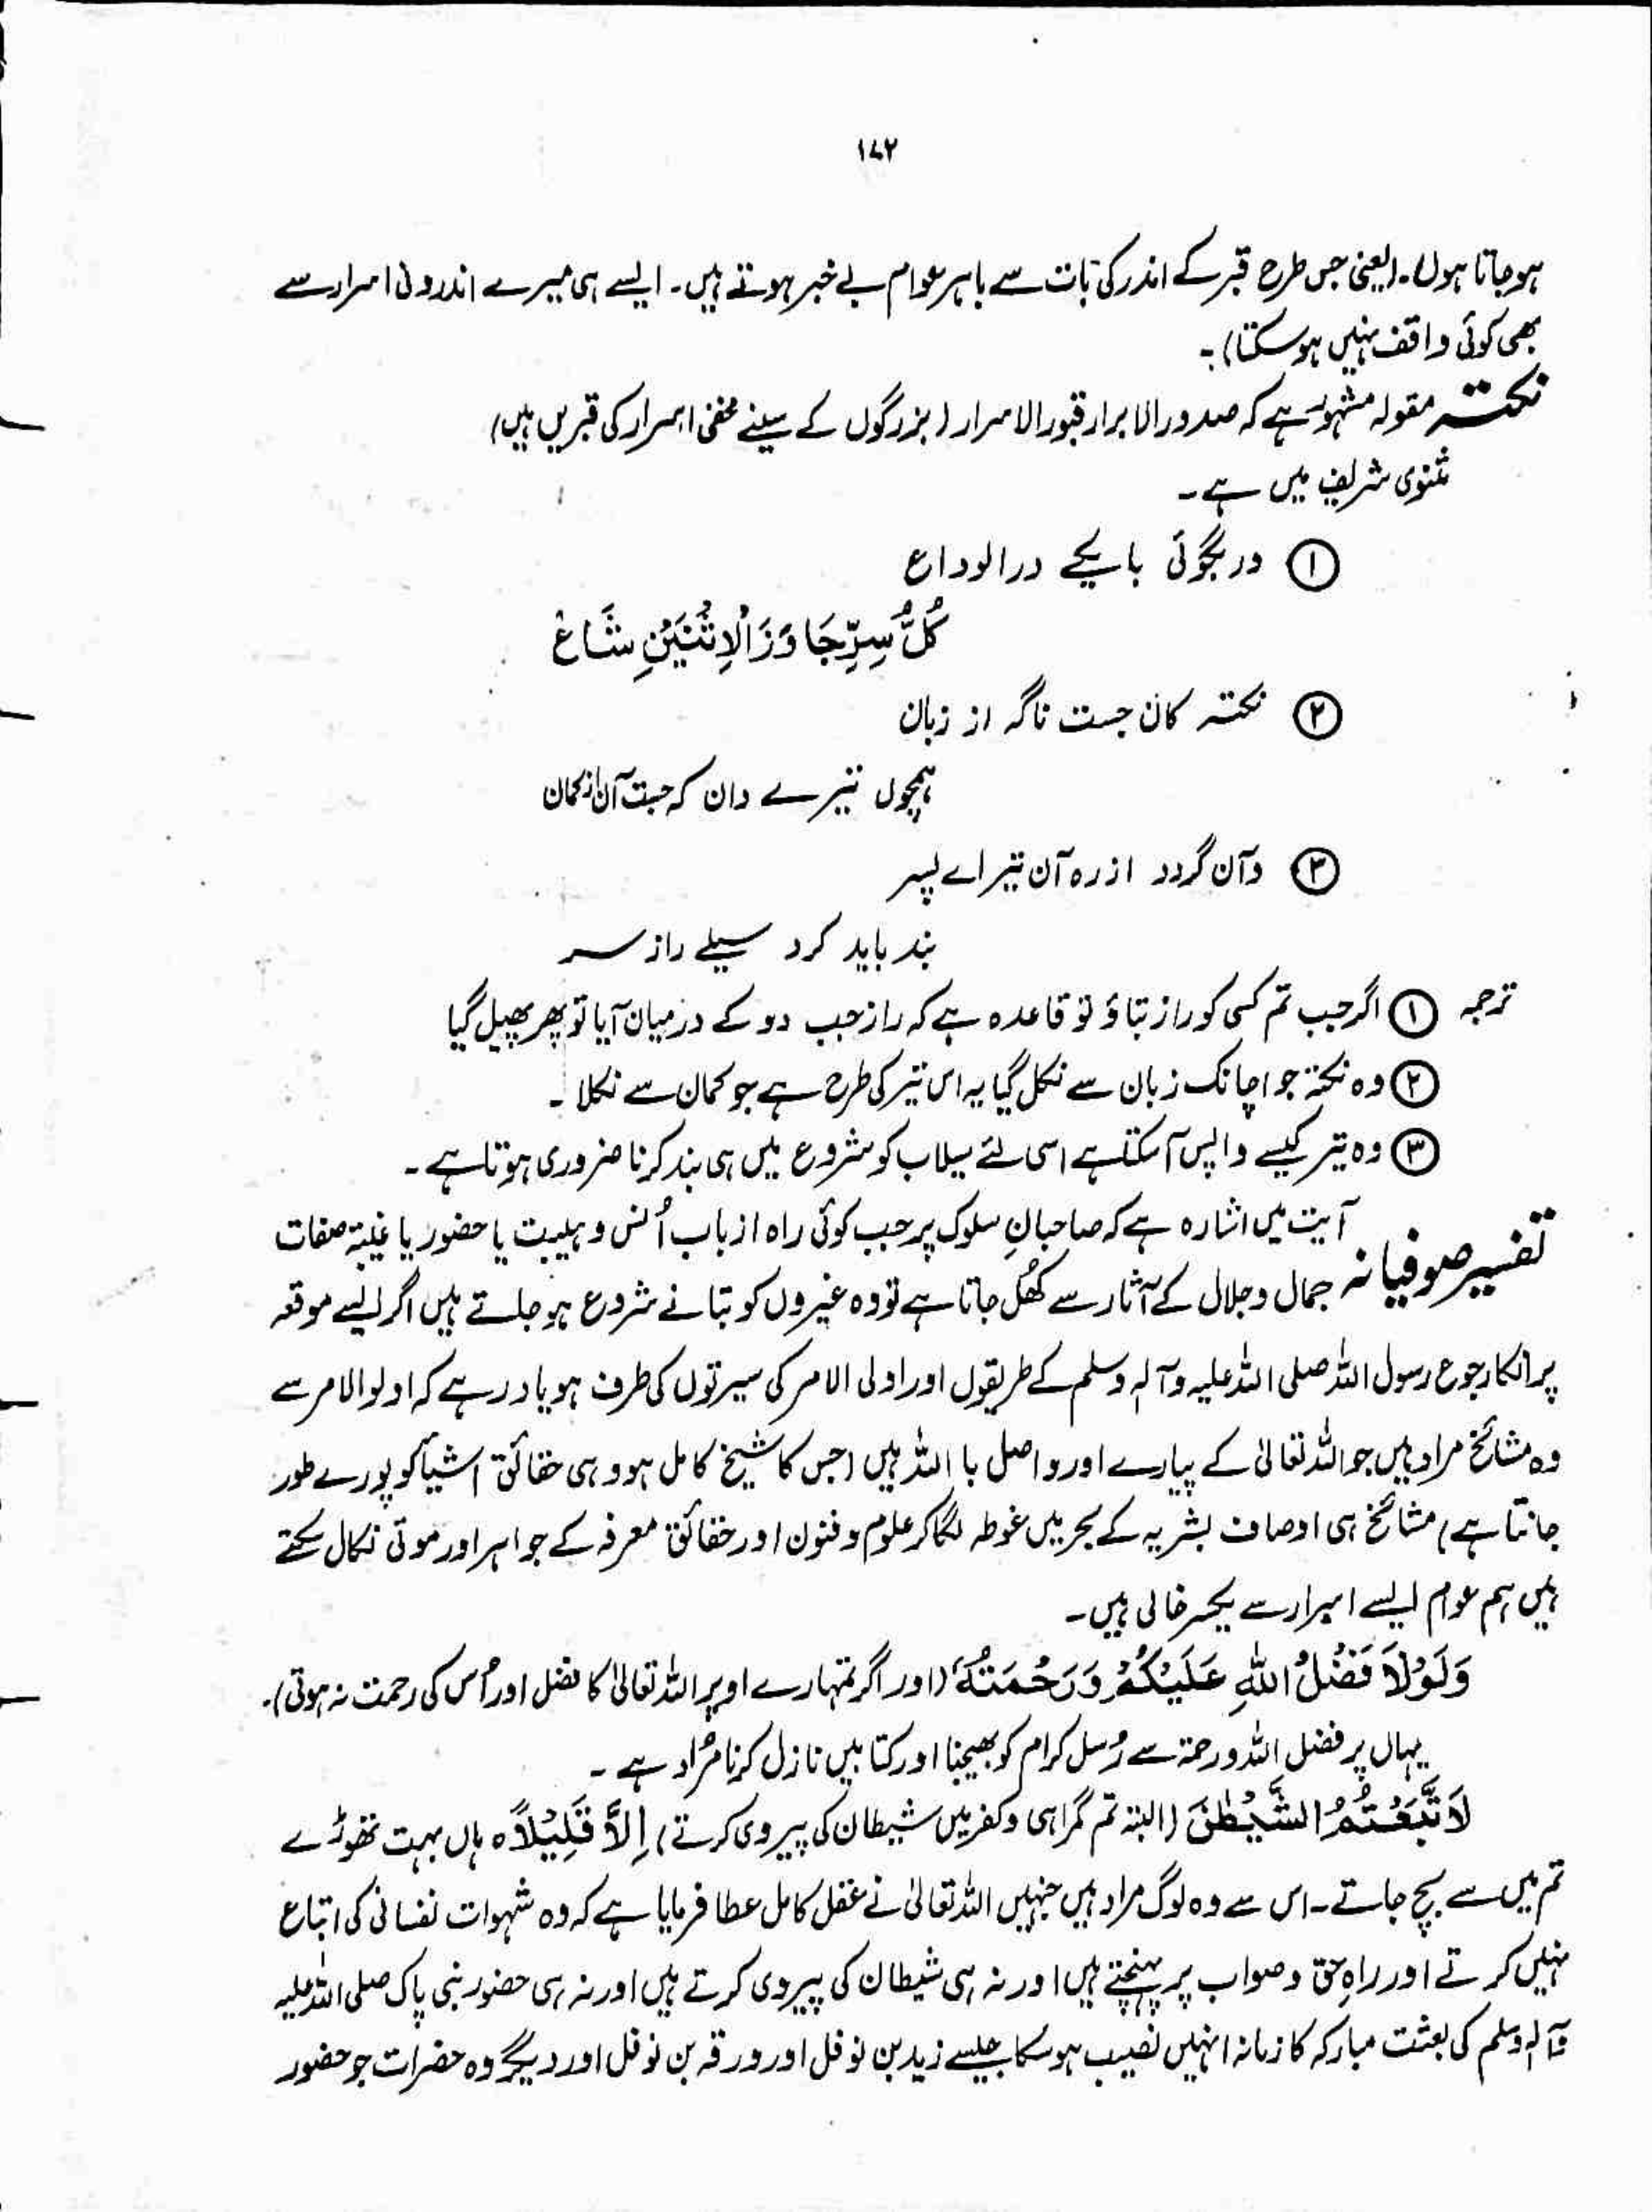 ۱۷۲
ہوجاتا ہوں۔ (یعنی جس طرح قبر کے اندر کی بات سے باہر عوام بے خبر ہوتے ہیں۔ ایسے ہی میرے اندرونی اسرار سے
بھی کوئی واقف نہیں ہوسکتا)۔
نکتہ مقولہ مشہور ہے کہ صدور الابرار قبور الاسرار (بزرگوں کے سینے مخفی اسرار کی قبریں ہیں)
مثنوی شریف میں ہے۔
① ور بگوئی بایکے درالوداع
كُلُّ سِرٍّ جَاوَزَ الْاِثْنَيْنِ شَاعْ
② نکتہ کان جست ناگہ از زبان
ہمچوں تیرے دان کہ جست آن از کمان
③ وآن گردد ازرہ آن تیر اے پسر
بند باید کرد سیلے راز سر
ترجمہ ① اگر جب تم کسی کو راز بتاؤ تو قاعدہ ہے کہ راز جب دو کے درمیان آیا تو پھر پھیل گیا
② وہ نکتہ جو اچانک زبان سے نکل گیا یہ اس تیر کی طرح ہے جو کمان سے نکلا۔
③ وہ تیر کیسے واپس آسکتا ہے اسی لئے سیلاب کو شروع میں ہی بند کرنا ضروری ہوتا ہے۔
تفسیر صوفیانہ آیت میں اشارہ ہے کہ صاحبانِ سلوک پر جب کوئی راہ از باب اُنس و ہیبت یا حضور یا غیبۃ صفات
جمال وجلال کے آثار سے کھُل جاتا ہے تو وہ غیروں کو بتانے شروع ہوجاتے ہیں اگر ایسے موقعہ
پر انکا رجوع رسول اللہ صلی اللہ علیہ وآلہ وسلم کے طریقوں اور اولی الامر کی سیرتوں کی طرف ہو یاد رہے کہ اولوالامر سے
وہ مشائخ مراد ہیں جو اللہ تعالیٰ کے پیارے اور واصل با اللہ ہیں (جس کا شیخ کامل ہو وہی حقائق اشیأ کو پورے طور
جانتا ہے) مشائخ ہی اوصاف بشریہ کے بحر میں غوطہ لگا کر علوم وفنون اور حقائق معرفۃ کے جواہر اور موتی نکال سکتے
ہیں ہم عوام ایسے اسرار سے یکسر خالی ہیں۔
وَلَوْلَا فَضْلُ اللّٰهِ عَلَيْكُمْ وَرَحْمَتُهٗ (اور اگر تمہارے اوپر اللہ تعالیٰ کا فضل اور اُس کی رحمت نہ ہوتی)۔
یہاں پر فضل اللہ ورحمۃ سے رُسل کرام کو بھیجنا اور کتابیں نازل کرنا مُراد ہے۔
لَاتَّبَعْتُمُ الشَّيْطٰنَ (البتہ تم گمراہی وکفر میں شیطان کی پیروی کرتے) اِلَّا قَلِيْلًا ہ ہاں بہت تھوڑے
تم میں سے بچ جاتے۔ اس سے وہ لوگ مراد ہیں جنہیں اللہ تعالیٰ نے عقل کامل عطا فرمایا ہے کہ وہ شہوات نفسانی کی اتباع
نہیں کرتے اور راہِ حق وصواب پر پہنچتے ہیں اور نہ ہی شیطان کی پیروی کرتے ہیں اور نہ ہی حضور نبی پاک صلی اللہ علیہ
وآلہ وسلم کی بعثت مبارکہ کا زمانہ انہیں نصیب ہوسکا جیسے زید بن نوفل اور ورقہ بن نوفل اور دیگر وہ حضرات جو حضور